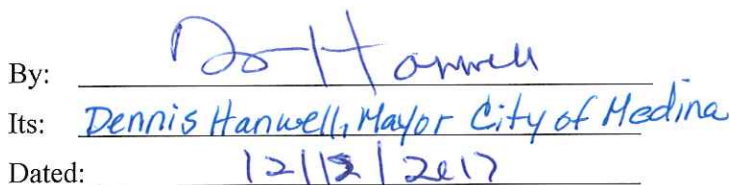 By: D Hanwell
Its: Dennis Hanwell, Mayor City of Medina
Dated: 12/12/2017